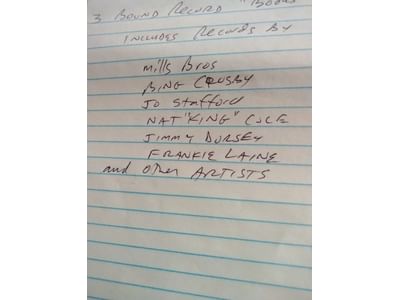 3 BOUND RECORD "BOOKS
INCLUDES RECORDS BY
Mills Bros
BING CROSBY
JO Stafford
NAT "KING" COLE
JIMMY DORSEY
FRANKIE LAINE
and other ARTISTS